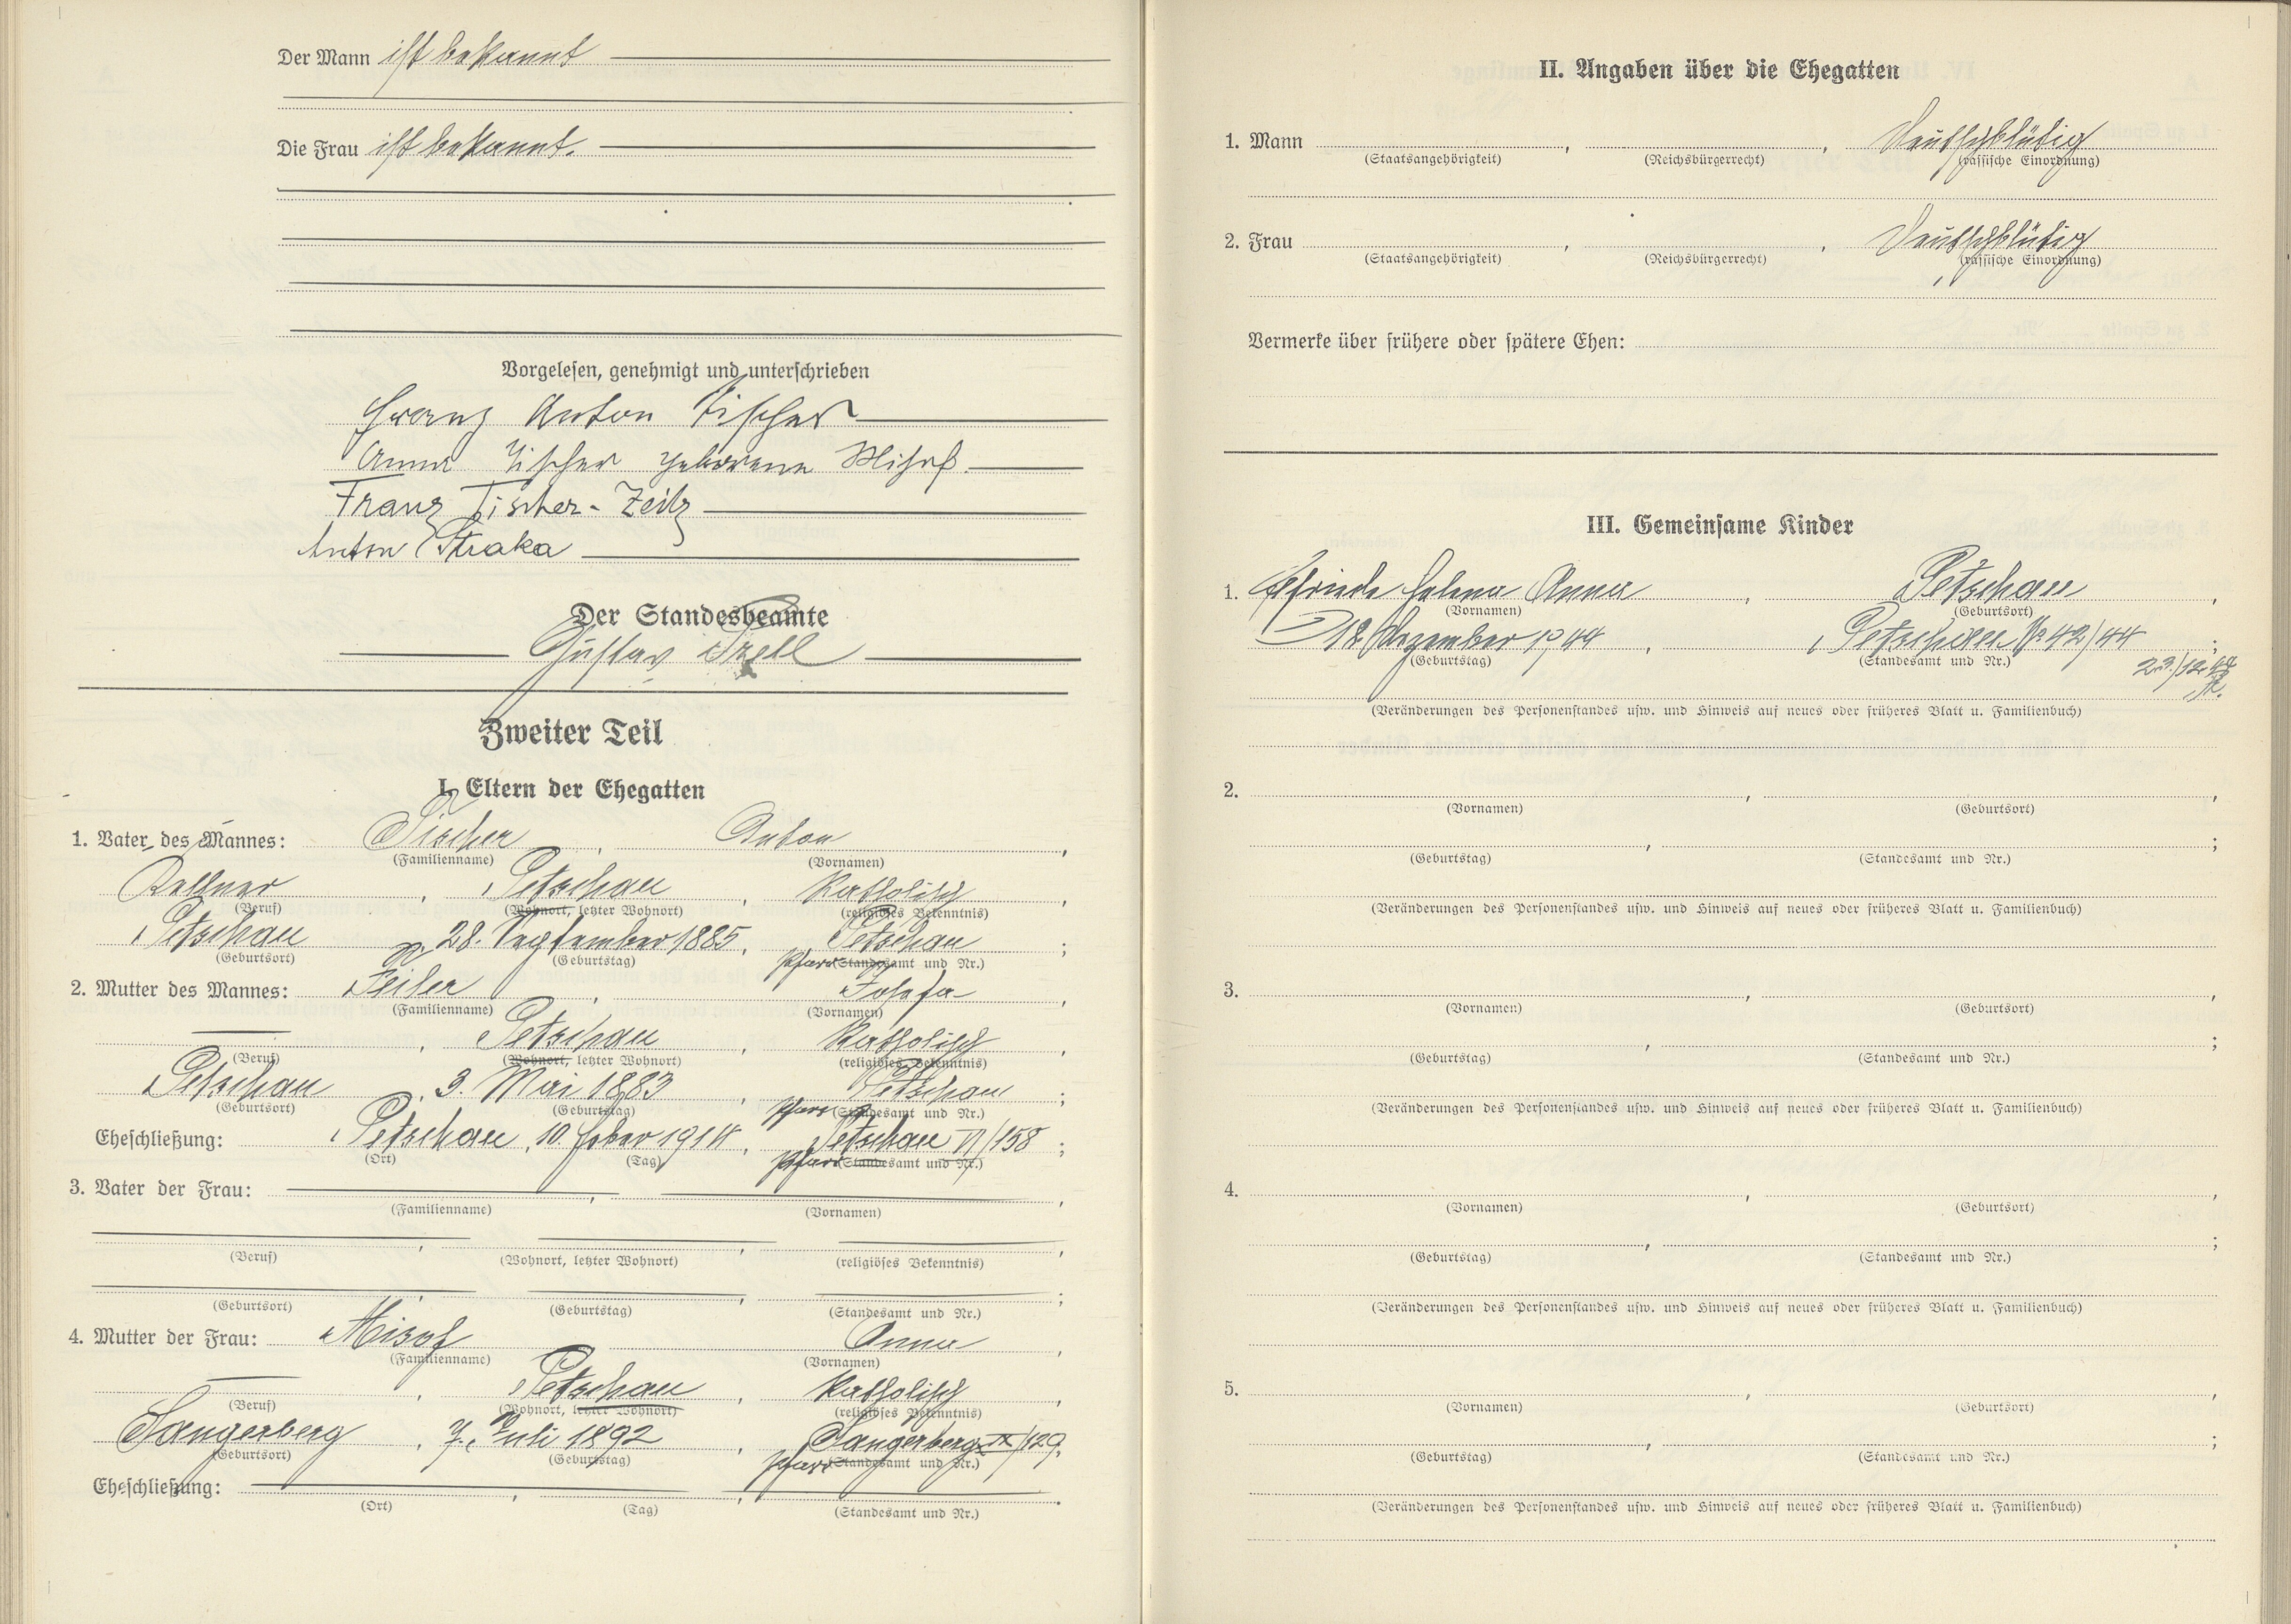 Der Mann ist bekannt
Die Frau ist bekannt.
Vorgelesen, genehmigt und unterschrieben
Franz Anton Tischer
Anna Tischer geborene Misof
Franz Tischer - Zeitz
Anton Straka
Der Standesbeamte
Gustav
Zweiter Teil
I. Eltern der Ehegatten
1. Vater des Mannes: Tischer, Anton,
(Familienname) (Vornamen)
Kellner, Petschau, katholisch,
(Beruf) (Wohnort, letzter Wohnort) (religiöses Bekenntnis)
Petschau 28. September 1885, Petschau;
(Geburtsort) (Geburtstag) Pfarr (Standesamt und Nr.)
2. Mutter des Mannes: Josefa,
(Familienname) (Vornamen)
Petschau, katholisch,
(Beruf) (Wohnort, letzter Wohnort) (religiöses Bekenntnis)
Petschau, 3. Mai 1883, Petschau;
(Geburtsort) (Geburtstag) Pfarr (Standesamt und Nr.)
Eheschließung: Petschau, 10. 1914, Petschau VI/158;
(Ort) (Tag) Pfarr (Standesamt und Nr.)
3. Vater der Frau: , ,
(Familienname) (Vornamen)
(Beruf) (Wohnort, letzter Wohnort) (religiöses Bekenntnis)
(Geburtsort) (Geburtstag) (Standesamt und Nr.)
4. Mutter der Frau: Misof Anna,
(Familienname) (Vornamen)
Petschau, katholisch,
(Beruf) (Wohnort, letzter Wohnort) (religiöses Bekenntnis)
Sangerberg, 7. Juli 1892, Sangerberg IX/129,
(Geburtsort) (Geburtstag) Pfarr (Standesamt und Nr.)
Eheschließung:
(Ort) (Tag) (Standesamt und Nr.)
II. Angaben über die Ehegatten
1. Mann , , Deutschblütig
(Staatsangehörigkeit) (Reichsbürgerrecht) (rassische Einordnung)
2. Frau , , Deutschblütig
(Staatsangehörigkeit) (Reichsbürgerrecht) (rassische Einordnung)
Vermerke über frühere oder spätere Ehen:
III. Gemeinsame Kinder
1. Elfriede Helena Anna, Petschau,
(Vornamen) (Geburtsort)
12. Dezember 1944, Petschau Nr 42/44;
(Geburtstag) (Standesamt und Nr.)
23./12. 44
(Veränderungen des Personenstandes usw. und Hinweis auf neues oder früheres Blatt u. Familienbuch)
2. , ,
(Vornamen) (Geburtsort)
, ;
(Geburtstag) (Standesamt und Nr.)
(Veränderungen des Personenstandes usw. und Hinweis auf neues oder früheres Blatt u. Familienbuch)
3. , ,
(Vornamen) (Geburtsort)
, ;
(Geburtstag) (Standesamt und Nr.)
(Veränderungen des Personenstandes usw. und Hinweis auf neues oder früheres Blatt u. Familienbuch)
4. , ,
(Vornamen) (Geburtsort)
, ;
(Geburtstag) (Standesamt und Nr.)
(Veränderungen des Personenstandes usw. und Hinweis auf neues oder früheres Blatt u. Familienbuch)
5. , ,
(Vornamen) (Geburtsort)
, ;
(Geburtstag) (Standesamt und Nr.)
(Veränderungen des Personenstandes usw. und Hinweis auf neues oder früheres Blatt u. Familienbuch)